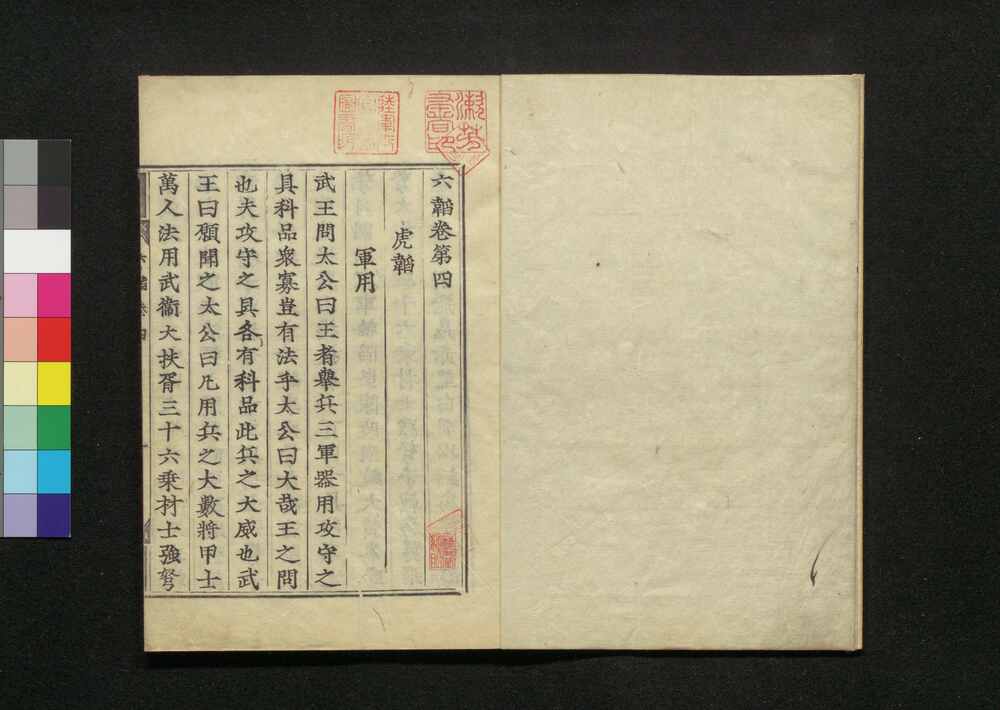 六韜卷第四
虎韜
軍用
武王問太公曰王者舉兵三軍器用攻守之
具科品衆寡豈有法乎太公曰大哉王之問
也夫攻守之具各有科品此兵之大威也武
王曰願聞之太公曰凡用兵之大數將甲士
萬人法用武衞大扶胥三十六乘材士強弩
六韜卷四